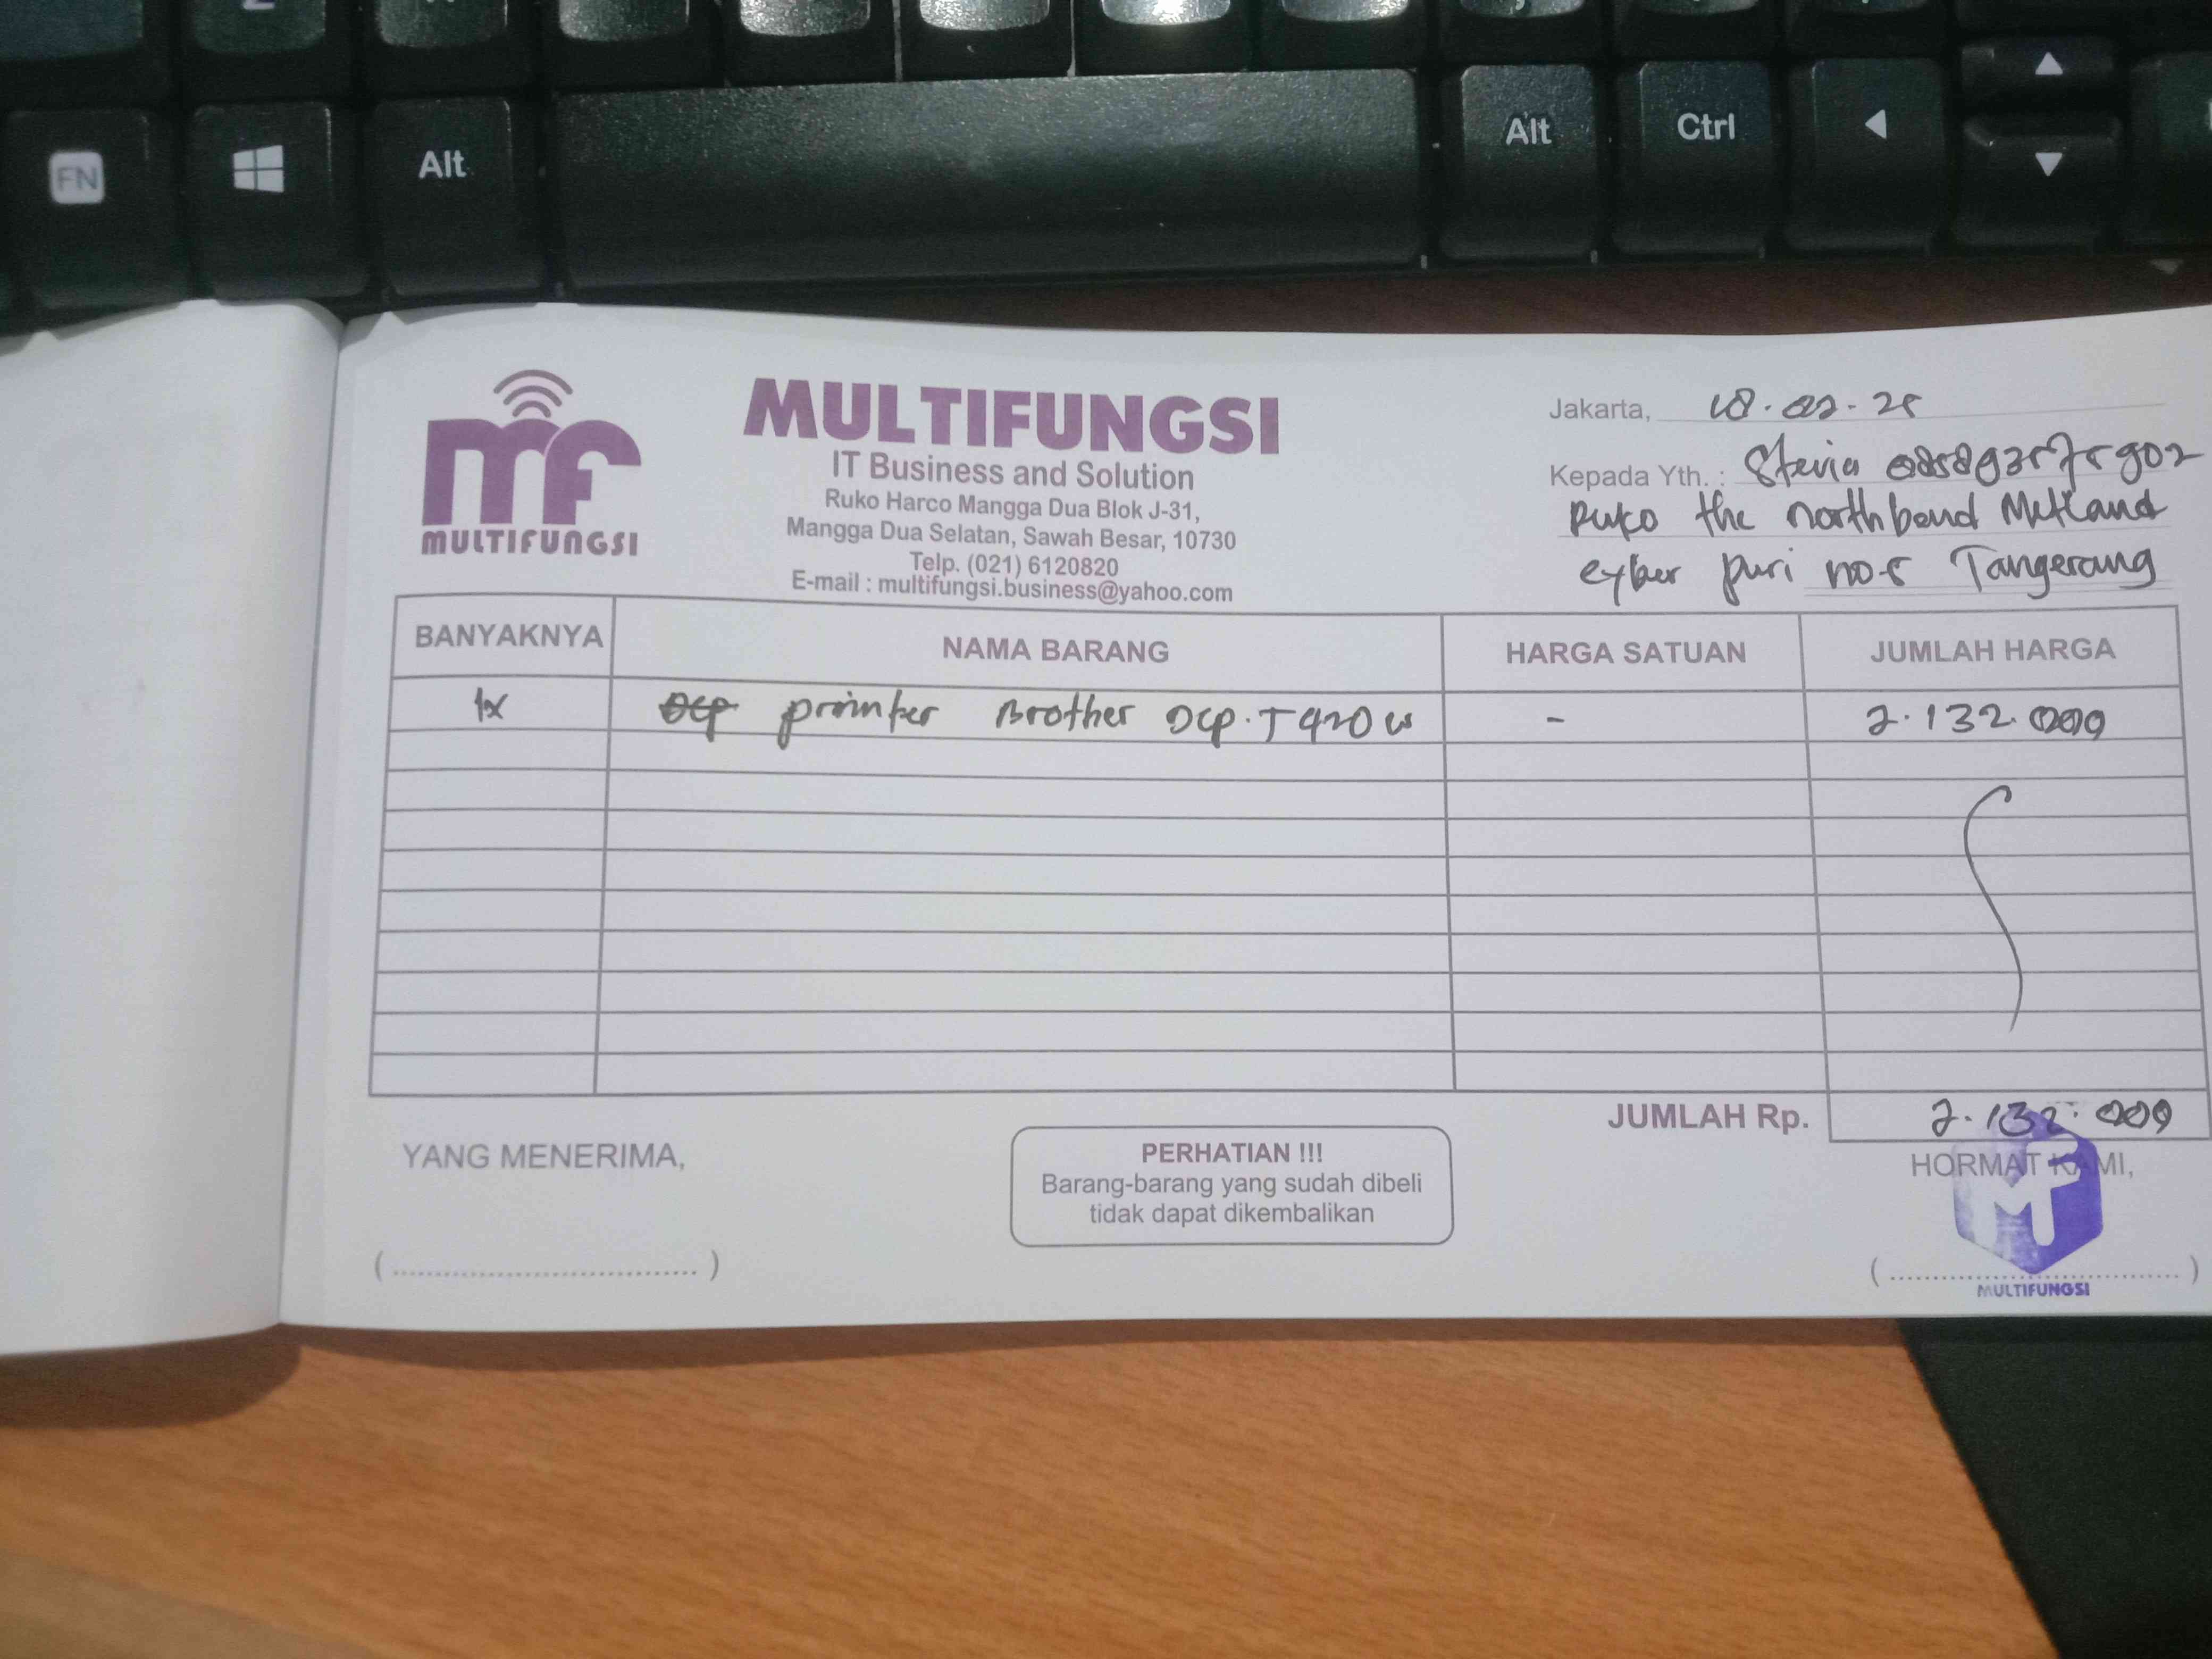 FN
Alt
Alt
Ctrl
mf
MULTIFUNGSI
MULTIFUNGSI
IT Business and Solution
Ruko Harco Mangga Dua Blok J-31,
Mangga Dua Selatan, Sawah Besar, 10730
Telp. (021) 6120820
E-mail : multifungsi.business@yahoo.com
Jakarta,
Kepada Yth. : Stevia
Ruko the northbend Metland
cyber puri no 5 Tangerang
BANYAKNYA NAMA BARANG HARGA SATUAN JUMLAH HARGA
1x printer Brother DCP. T420w - 2.132.000
JUMLAH Rp. 2.132.000
YANG MENERIMA,
PERHATIAN !!!
Barang-barang yang sudah dibeli
tidak dapat dikembalikan
HORMAT KAMI,
(..............................)
(..............................)
MULTIFUNGSI